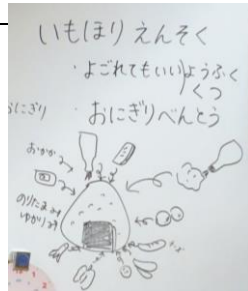 いもほりえんそく
・よごれてもいい ようふく
くつ
にぎり ・おにぎりべんとう
おかか
のりたま
ゆかり